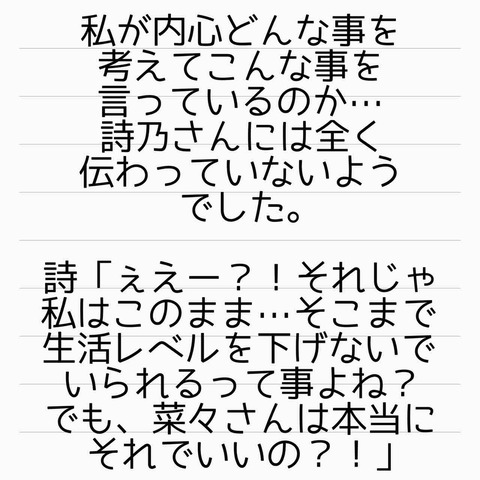 私が内心どんな事を
考えてこんな事を
言っているのか…
詩乃さんには全く
伝わっていないよう
でした。
詩「ぇえー？！それじゃ
私はこのまま…そこまで
生活レベルを下げないで
いられるって事よね？
でも、菜々さんは本当に
それでいいの？！」